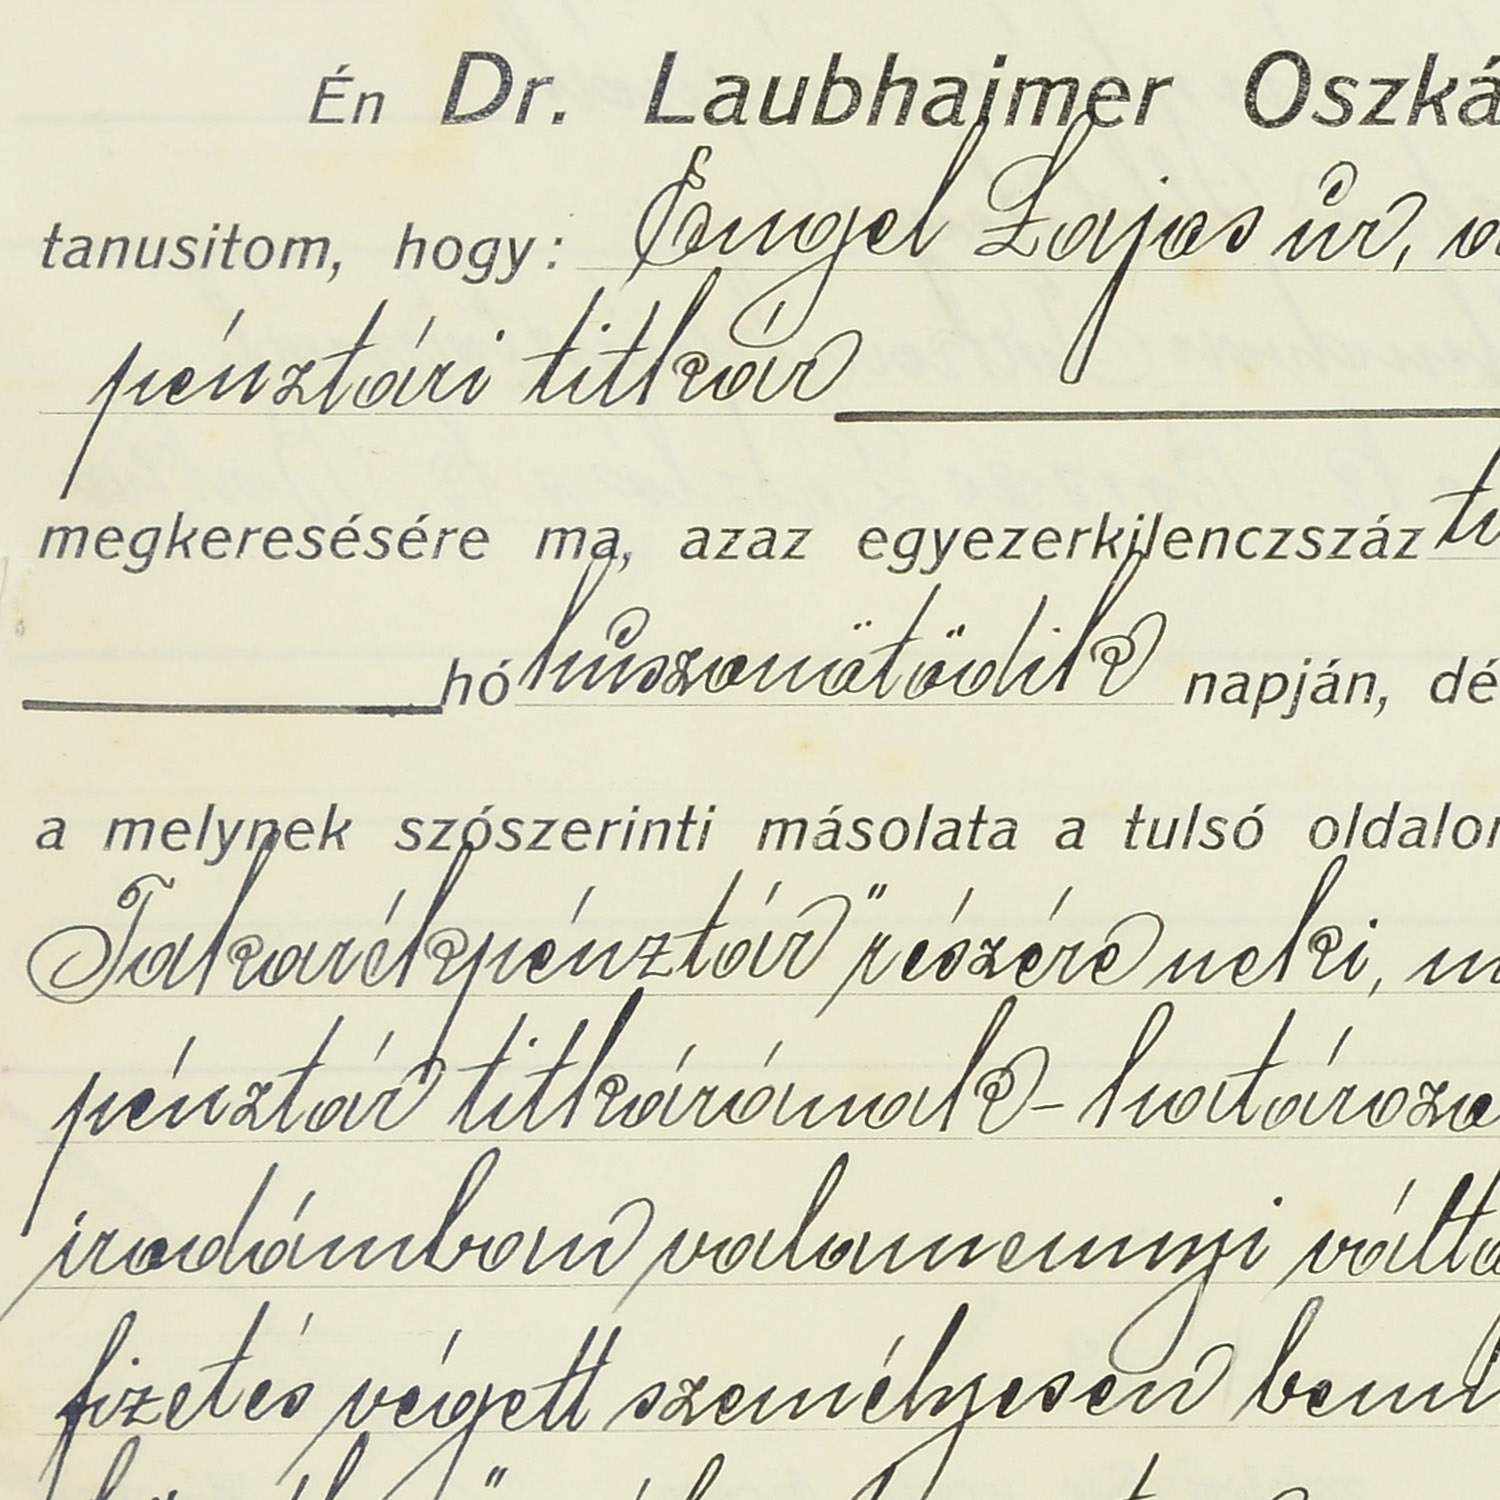 Én Dr. Laubhaimer Oszká
tanusitom, hogy: Engel Lajos úr, a
pénztári titkár
megkeresésére ma, azaz egyezerkilenczszáz ti
hó huszonötödik napján, dé
a melynek szószerinti másolata a tulsó oldalon
Takarékpénztár" részére neki, m
pénztár titkárának - határoza
irodámban valamennyi váltó
fizetés végett személyesen bem